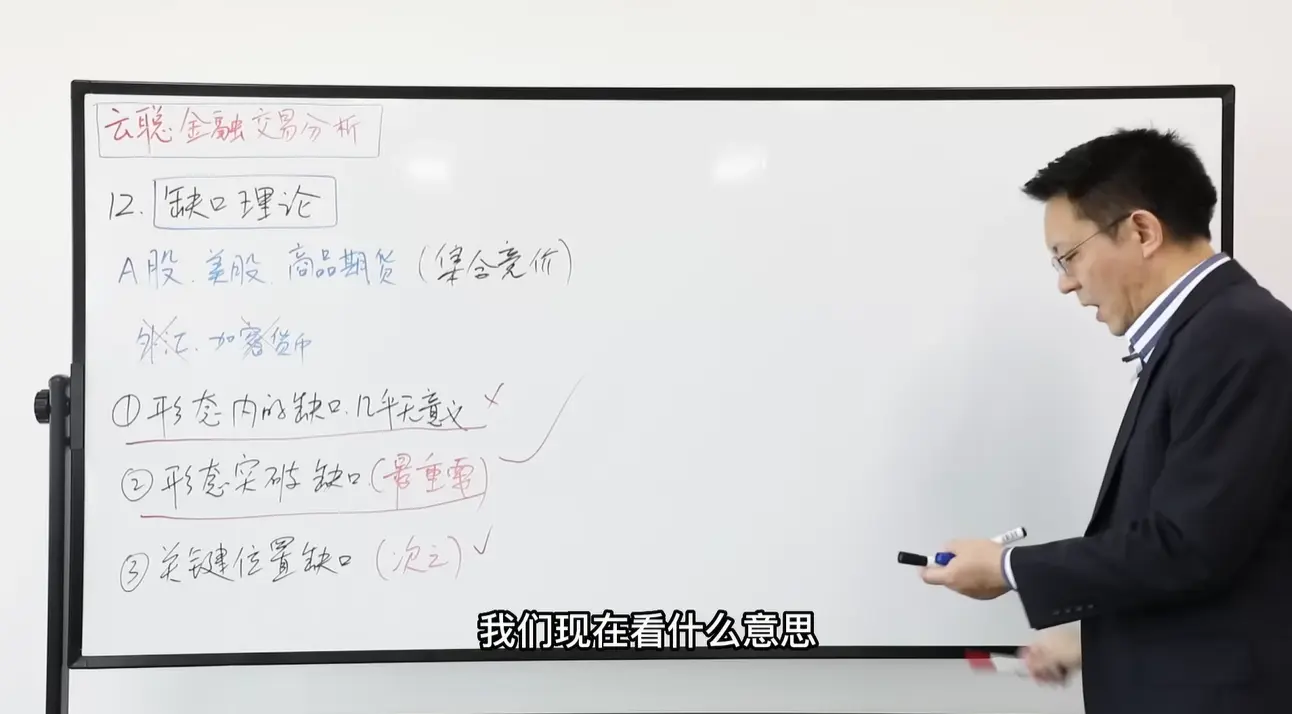 云聪金融交易分析
12. 缺口理论
A股、美股、商品期货（集合竞价）
外汇、加密货币
①形态内的缺口、几乎无意义 ×
②形态突破缺口（最重要）✓
③关键位置缺口（次之）✓
我们现在看什么意思